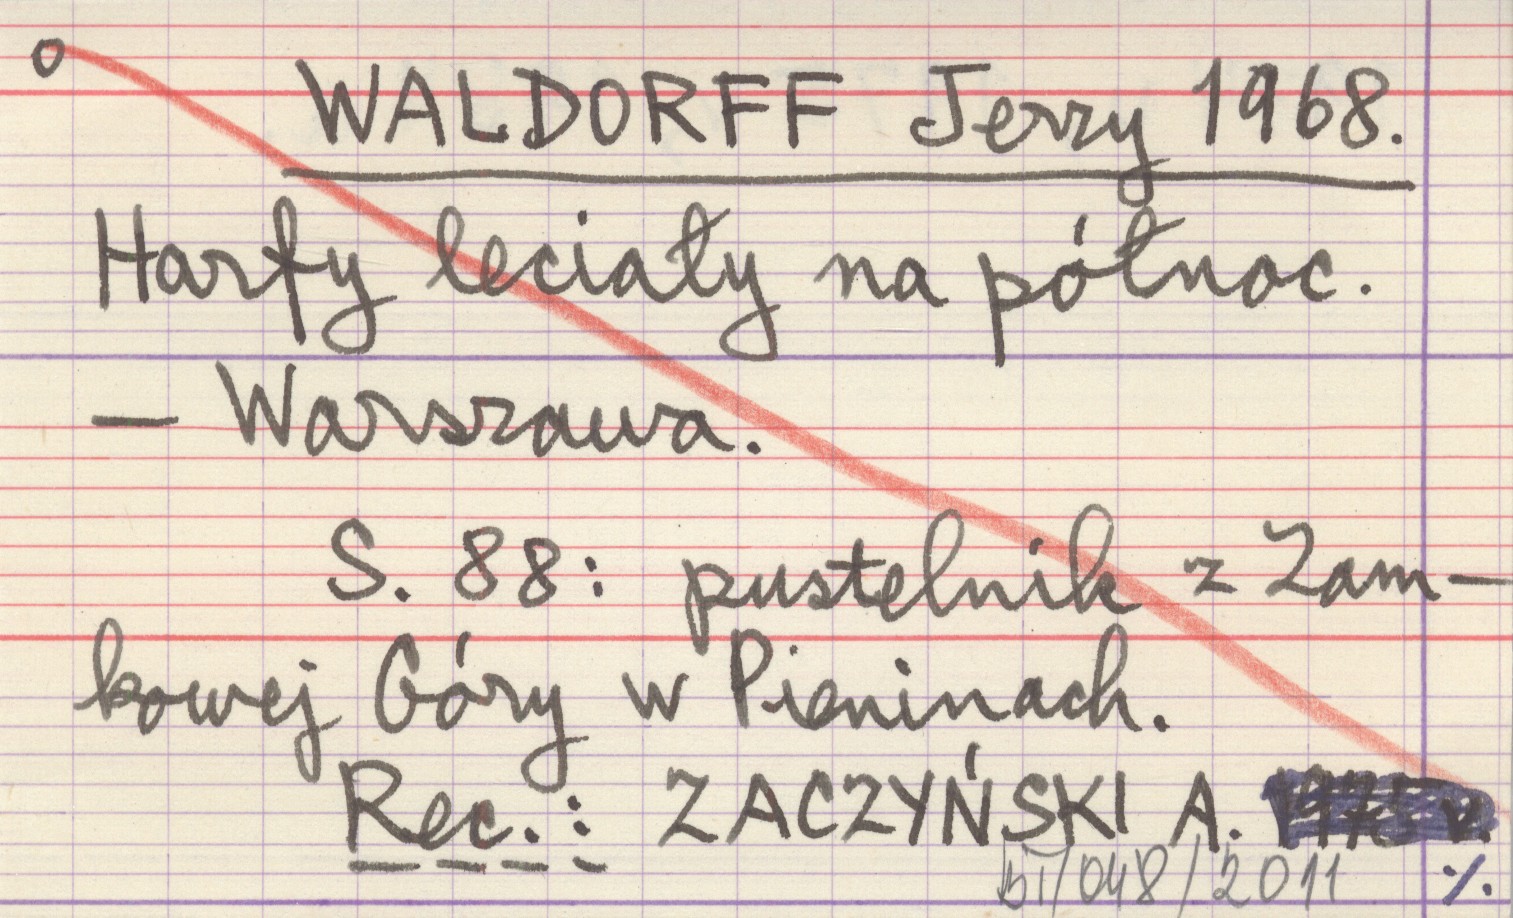 WALDORFF Jerzy 1968.
Harfy leciały na północ.
— Warszawa.
S. 88: pustelnik z Zam-
kowej Góry w Pieninach.
Rec.: ZACZYŃSKI A.
/048/2011 ./.